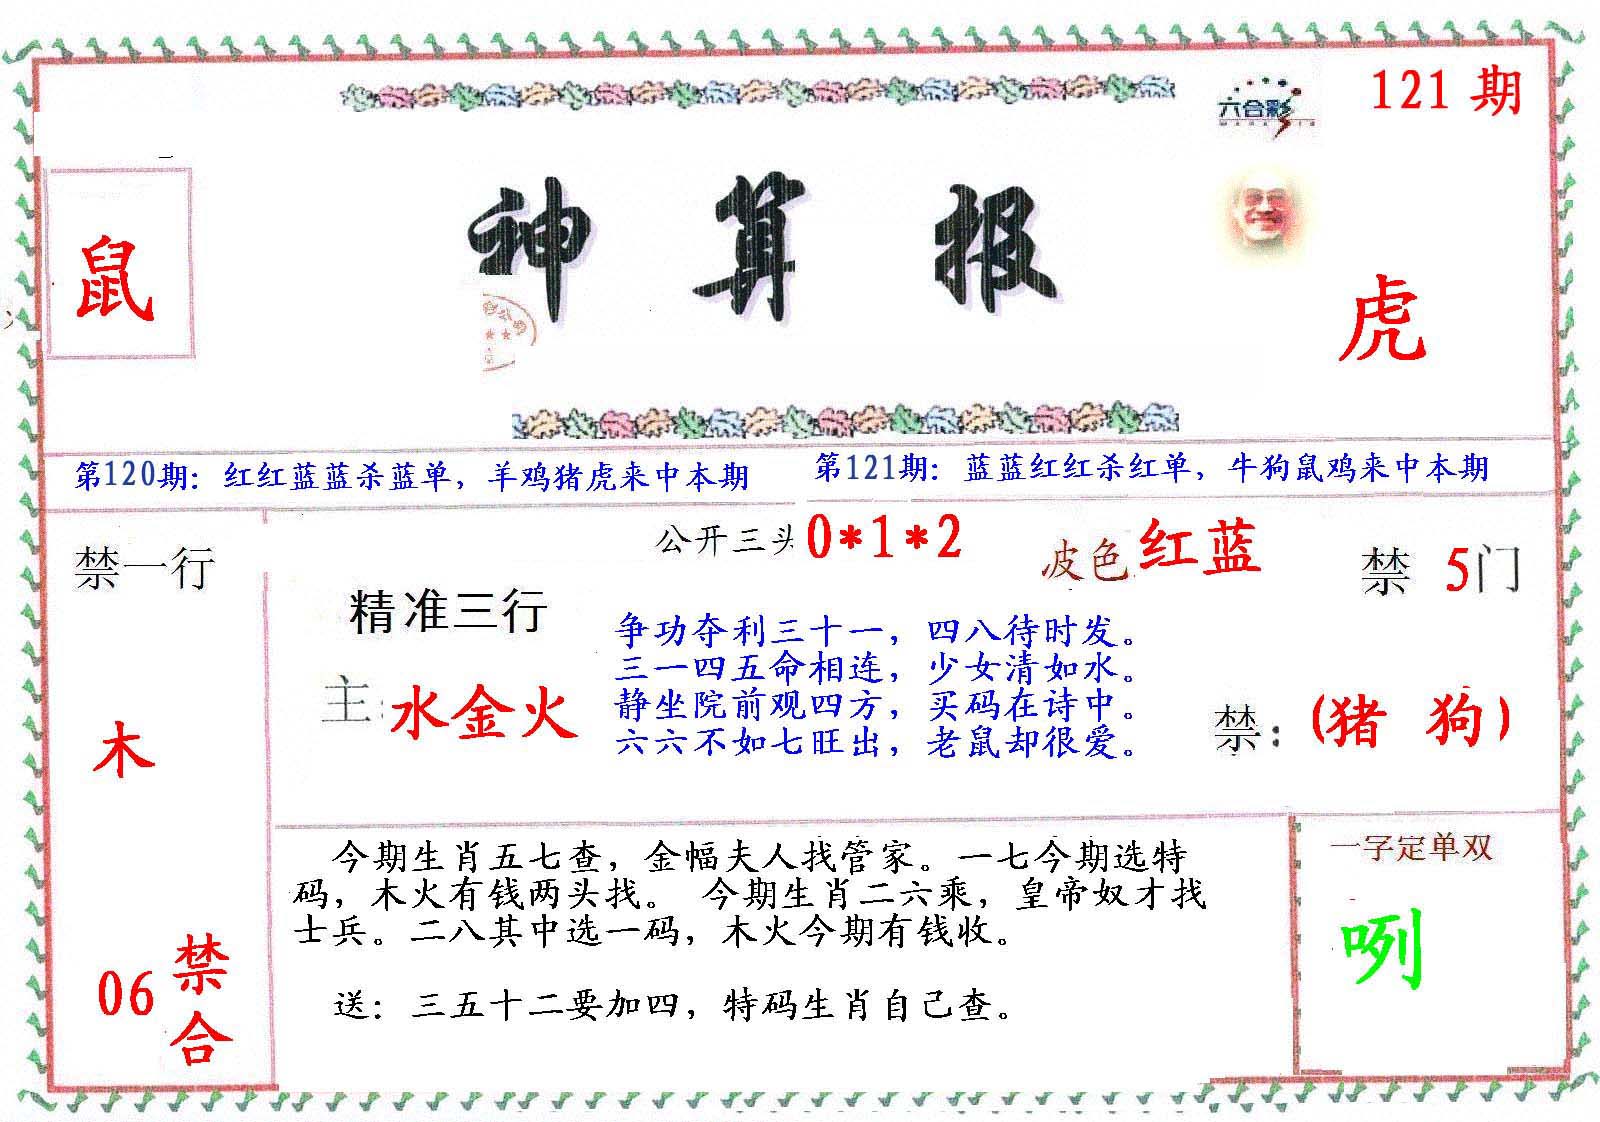 六合彩
121 期
鼠
神算报
虎
第120期：红红蓝蓝杀蓝单，羊鸡猪虎来中本期
第121期：蓝蓝红红杀红单，牛狗鼠鸡来中本期
禁一行
木
06 禁合
公开三头 0*1*2
波色 红蓝
禁 5门
精准三行
主: 水金火
争功夺利三十一，四八待时发。
三一四五命相连，少女清如水。
静坐院前观四方，买码在诗中。
六六不如七旺出，老鼠却很爱。
禁: (猪 狗)
今期生肖五七查，金幅夫人找管家。一七今期选特
码，木火有钱两头找。 今期生肖二六乘，皇帝奴才找
士兵。二八其中选一码，木火今期有钱收。
送：三五十二要加四，特码生肖自己查。
一字定单双
咧